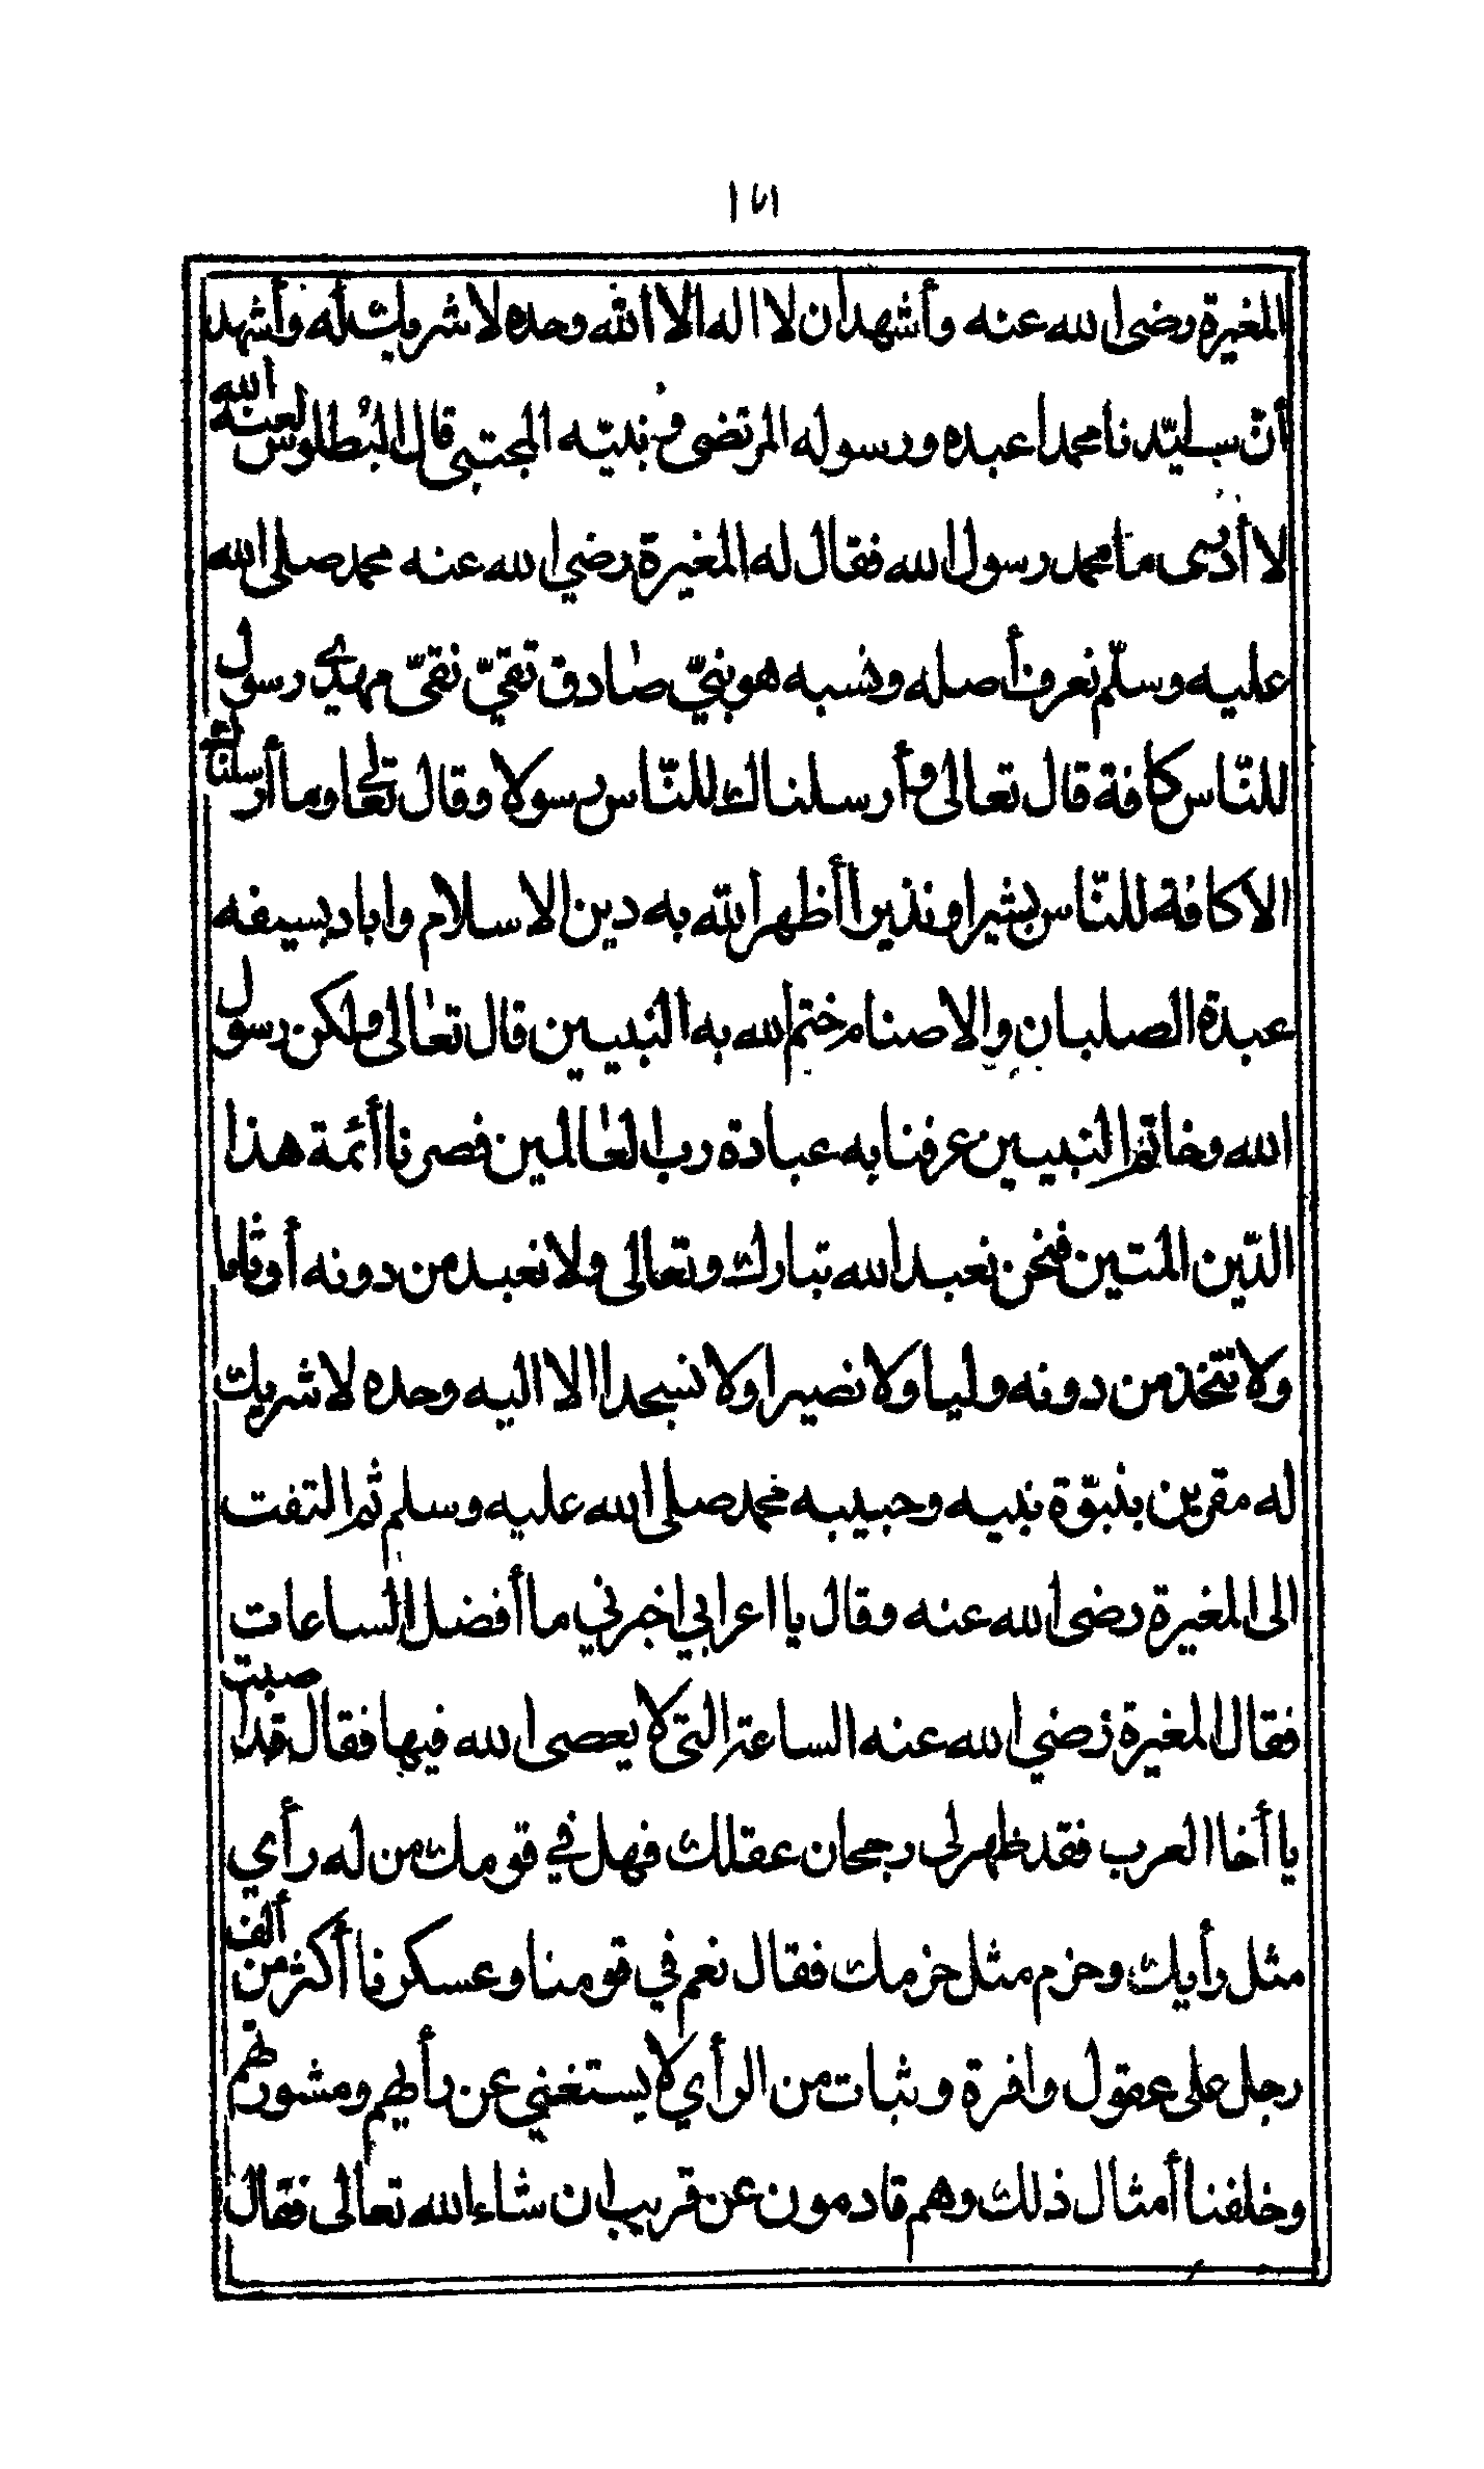 ١٧١
المغيرة رضى الله عنه وأشهد أن لا اله الا الله وحده لا شريك له وأشهد
أنّ سيّدنا محمدا عبده ورسوله المرتضى ونبيّه المجتبى قال البُطلوس لعنه الله
لا أدرى ما محمد رسول الله فقال له المغيرة رضي الله عنه محمد صلى الله
عليه وسلّم نعرف أصله ونسبه هو نبيّ صادق تقيّ نقيّ مهديّ رسول
للنّاس كافة قال تعالى وأرسلناك للنّاس رسولا وقال تعالى وما أرسلناك
الا كافة للنّاس بشيرا ونذيرا أظهر الله به دين الاسلام واباد بسيفه
عبدة الصلبان والاصنام ختم الله به النبيين قال تعالى ولكن رسول
الله وخاتم النبيين عرفنا به عبادة رب العالمين فصرنا أئمة هذا
الدّين المتين فنحن نعبد الله تبارك وتعالى ولا نعبد من دونه أوثانا
ولا نتخذ من دونه وليا ولا نصيرا ولا نسجد الا اليه وحده لا شريك
له مقرين بنبوّة نبيه وحبيبه محمد صلى الله عليه وسلم ثم التفت
الى المغيرة رضى الله عنه وقال يا اعرابي اخبرني ما أفضل الساعات
فقال المغيرة رضي الله عنه الساعة التى لا يعصى الله فيها فقال قد اصبت
يا أخا العرب فقد ظهر لى رجحان عقلك فهل في قومك من له رأي
مثل رأيك وحزم مثل حزمك فقال نعم في قومنا وعسكرنا أكثر من ألف
رجل على عقول وافرة وثبات من الرأي لا يستغني عن رأيهم ومشورتهم
وخلفنا أمثال ذلك وهم قادمون عن قريب ان شاء الله تعالى فقال